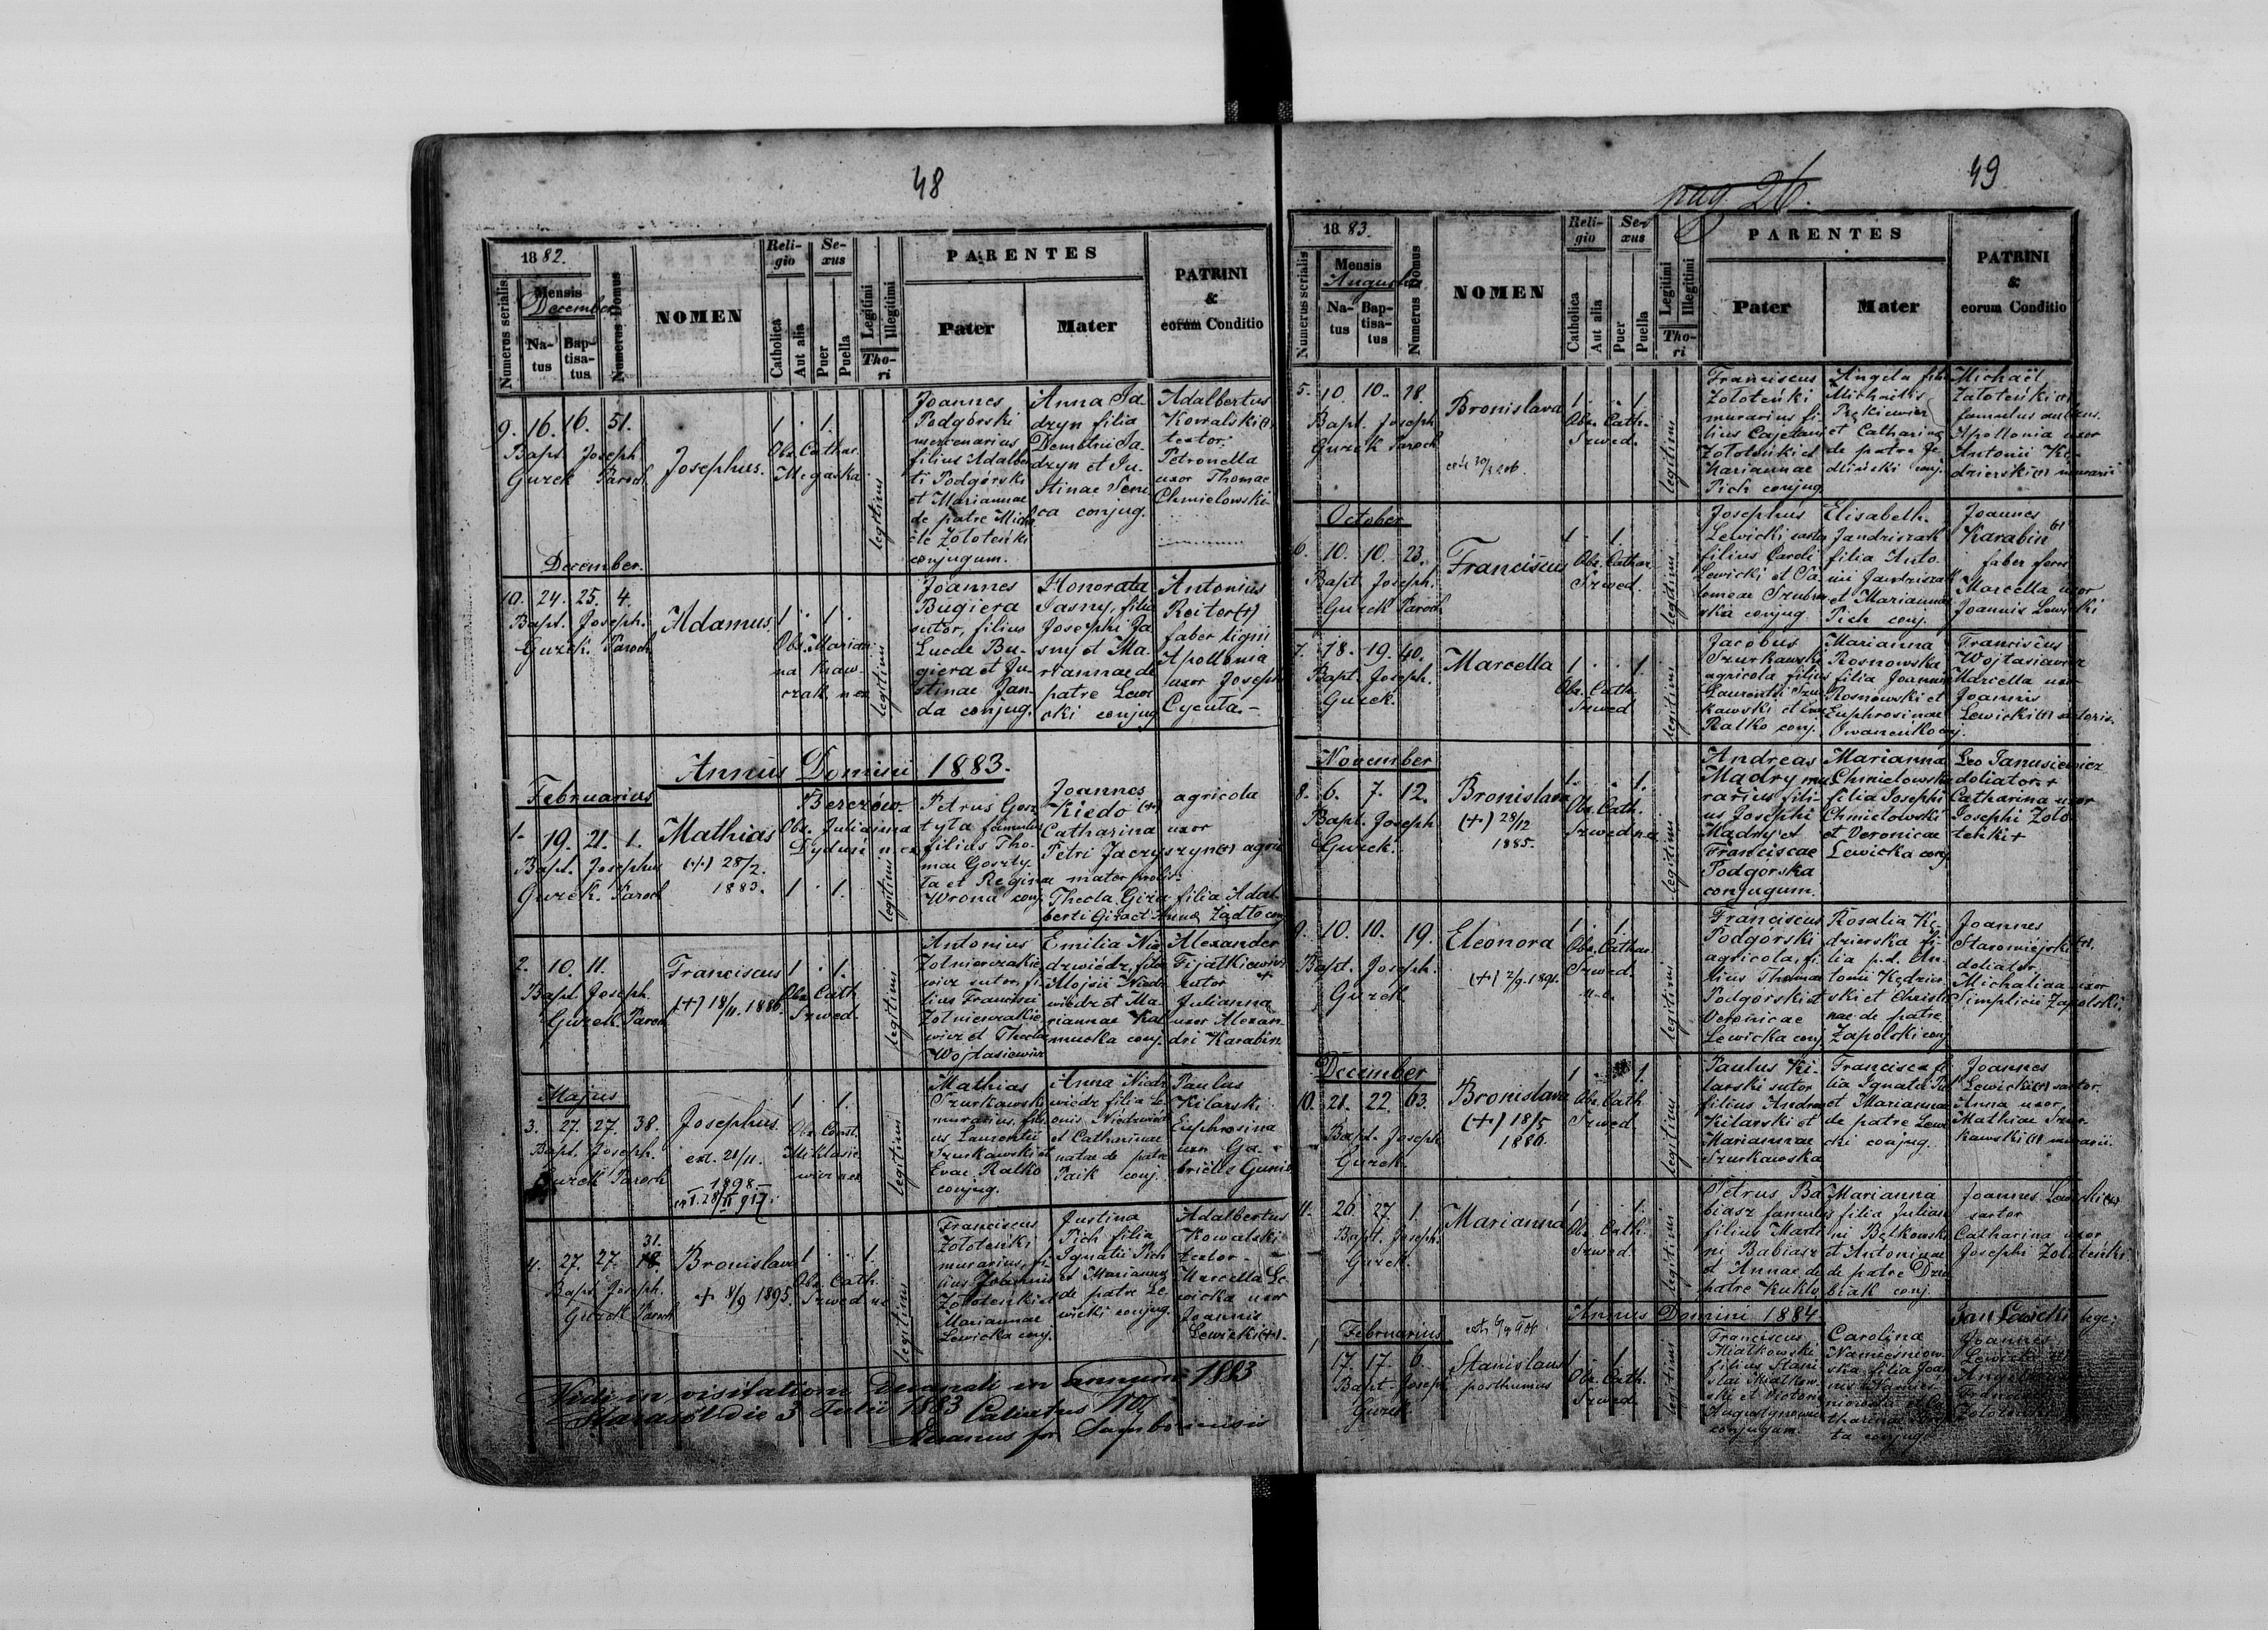 48
1882.
Numerus serialis
Mensis
December
Natus
Baptisatus
Numerus Domus
NOMEN
Religio
Catholica
Aut alia
Sexus
Puer
Puella
Legitimi
Illegitimi
Thori.
PARENTES
Pater
Mater
PATRINI
&
eorum Conditio
9. 16. 16. 51.
Bapt. Joseph
Gurek Paroch
Josephus.
1 . 1.
Obs. Cathar.
Megaska
legitimi
Joannes
Podgórski
mercenarius
filius Adalber
ti Podgórski
et Mariannae
de patre Mich
ele Zołoteński
conjugum.
Anna Ja
dzyn filia
Demetrii Ja
dzyn et Ju
stinae
conjug.
Adalbertus
Kowalski (+)
textor.
Petronella
uxor Thomae
Chmielowski
December.
10. 24. 25. 4.
Bapt. Joseph.
Gurek. Paroch
Adamus.
1 . 1.
Obs. Marian
na Kraw
czak n ex
legitimi
Joannes
Bugiera
sutor, filius
Lucae Bu-
giera et Ju
stinae Jan
da conjug.
Honorata
Jasny, filia
Josephi Ja
sny et Ma
riannae de
patre Lewi
cki conjug
Antonius
Reiter (+)
faber ligni
Apollonia
uxor Joseph
Cycuta.-
Annus Domini 1883.
Februarius
1. 19. 21. 1.
Bapt. Josephus
Gurek. Paroch
Mathias
(+) 28/2.
1883.
Berezów.
Obs. Julianna
Dydusi n. ex
1 . 1.
legitimi
Petrus Gosz
tyla famulus
filius Tho-
mae Goszty
la et Regina
Wrona conj
Joannes
Kiedo (+) agricola
Catharina uxor
Petri Jaczyszyn (+) agri
mater prolis:
Thecla Giza filia Adal
berti Giza et Anna Żądło conj
2. 10. 11.
Bapt. Joseph.
Gurek. Paroch
Franciscus
(+) 18/11. 1886.
1 . 1.
Obs. Cath.
Szwed.
legitimi
Antonius
Żołnierczakie
wicz sutor, fi
lius Francisci
Żołnierczakie
wicz et Thecla
Wojtasiewicz
Emilia Nie
dzwiedz, filia
Alojsii Niedz
wiedz et Ma
riannae Kal
mucka conj.
Alexander
Fijałkiewicz
sutor +
Julianna
uxor Alexan-
dri Karabin
Majus
3. 27. 27. 38.
Bapt. Joseph.
Gurek Paroch
Josephus.
ext. 21/11.
1898
1 . 1.
Obs. Const.
Miklasie
wicz n ex
legitimi
Mathias
Szurkawski
murarius, fili
us Laurentii
Szurkawski et
Evae Ratko
conjug.
Anna Niedz
wiedz filia Le
onis Niedzwiedz
et Catharinae
natae de patre
Paik conj.
Paulus
Kilarski
Euphrosina
uxor Ga-
brielis Guniá
4. 27. 27. 31.
Bapt. Joseph.
Gurek Paroch
Bronislava
+ 8/9 1895.
1 . . 1.
Obs. Cath.
Szwed ne
legitimi
Franciscus
Zołoteński
murarius, fi-
lius Joannis
Zołoteński et
Mariannae
Lewicka conj.
Justina
Pich filia
Ignatii Pich
et Marianna
de patre Le-
wicki conjug.
Adalbertus
Kowalski
textor -
Marcella Le-
wicka uxor
Joannis
Lewicki (+).
Vidi in visitatione Decanali in annum 1883
Starasól die 3 Julii 1883
Decanus for Samboriensis
pag 26.
49
1883.
Numerus serialis
Mensis
Augustus
Natus
Baptisatus
Numerus Domus
NOMEN
Religio
Catholica
Aut alia
Sexus
Puer
Puella
Legitimi
Illegitimi
Thori
PARENTES
Pater
Mater
PATRINI
&
eorum Conditio
5. 10. 10. 28.
Bapt. Joseph
Gurek Paroch
Bronislava
1. . 1
Obs. Cath.
Szwed.
legitimi
Franciscus
Zołoteński
murarius fi-
lius Cajetani
Zołoteński et
Mariannae
Pich conjug.
Angela filia
Michaëlis
Pękiewicz
et Catharina
de patre Je
dliński conj.
Michaël
Zołoteński (+)
famulus
Apollonia uxor
Antonii Kę-
dzierski (+) murarii
October
6. 10. 10. 23.
Bapt. Joseph.
Gurek Paroch
Franciscus
1. 1.
Obs. Cathar.
Szwed.
legitimi
Josephus
Lewicki
filius Caroli
Lewicki et Sa
lomeae Szubra
ska conjug
Elisabeth.
Jandziszak
filia Anto
nii Jandziszak
et Marianna
Pich conj.
Joannes
Karabin (+)
faber ferr
Marcella uxor
Joannis Lewicki
7. 18. 19. 40.
Bapt. Joseph.
Gurek.
Marcella
1. . 1
Obs. Cath.
Szwed
legitimi
Jacobus
Szurkawski
agricola filius
Laurentii Szur
kawski et Evae
Ratko conj.
Marianna
Rosnowska
filia Joannis
Rosnowski et
Euphrosinae
Owanenko conj.
Franciscus
Wojtasiewicz
Marcella uxor
Joannis
Lewicki (+) sartoris.
November
8. 6. 7. 12.
Bapt. Joseph
Gurek.
Bronislava
(+) 28/12
1885.
1. . 1.
Obs. Cath.
Szwed n.ex
legitimi
Andreas
Mądry mu
rarius fili-
us Josephi
Mądry et
Franciscae
Podgorska
conjugum.
Marianna
Chmielowska
filia Josephi
Chmielowski
et Veronicae
Lewicka conj
Leo Janusiewicz
doliator +
Catharina uxor
Josephi Zoło
teński +
9. 10. 10. 19.
Bapt. Joseph.
Gurek
Eleonora
(+) 2/9. 1891.
1. 1.
Obs. Cathar.
Szwed.
n. e.
legitimi
Franciscus
Podgórski
agricola, fi-
lius Thomae
Podgorski et
Veronicae
Lewicka conj
Rosalia Kę-
dzierska fi-
lia p.d. An-
tonii Kędzier
ski et Christi
nae de patre
Zapolski conj
Joannes
Staromiejski (+).
doliator.
Michalina uxor
Simplicii Zapolski.
December
10. 21. 22. 63.
Bapt. Joseph
Gurek.
Bronislava
(+) 18/5
1886.
1 . 1.
Obs. Cath
Szwed.
legitimi
Paulus Ki-
larski sutor
filius Andrea
Kilarski et
Mariannae
Szurkawska
Francisca fi
lia Ignatii Pich
et Marianna
de patre Lewi
cki conjug.
Joannes
Lewicki (+) sartor.
Anna uxor
Mathiae Szur-
kawski (+) murarii.
11. 26. 27. 1.
Bapt. Joseph.
Gurek.
Marianna
1. . 1.
Obs. Cath.
Szwed.
legitimi
Petrus Ba
biasz famulus
filius Marti
ni Babiasz
et Annae de
patre Kukla
Marianna
filia Julian
ni Bętkowski
et Antoninae
de patre Dziu
biak conj.
Joannes Lewicki (+)
sartor
Catharina uxor
Josephi Zołoteński
Annus Domini 1884
Februarius
1 17. 17. 6.
Bapt. Joseph
Gurek
Stanislaus
posthumus
1. 1.
Obs. Cath.
Szwed.
legitimi
Franciscus
Miatkowski
filius Stani
slai Miatkow
ski et Victoria
Augustynowicz
conjugum.
Carolina
Namiesniow
ska filia Joan
nis Namies
niowski et Ca
tharinae
conjug.
Jan Lewicki
Joannes
Lewicki